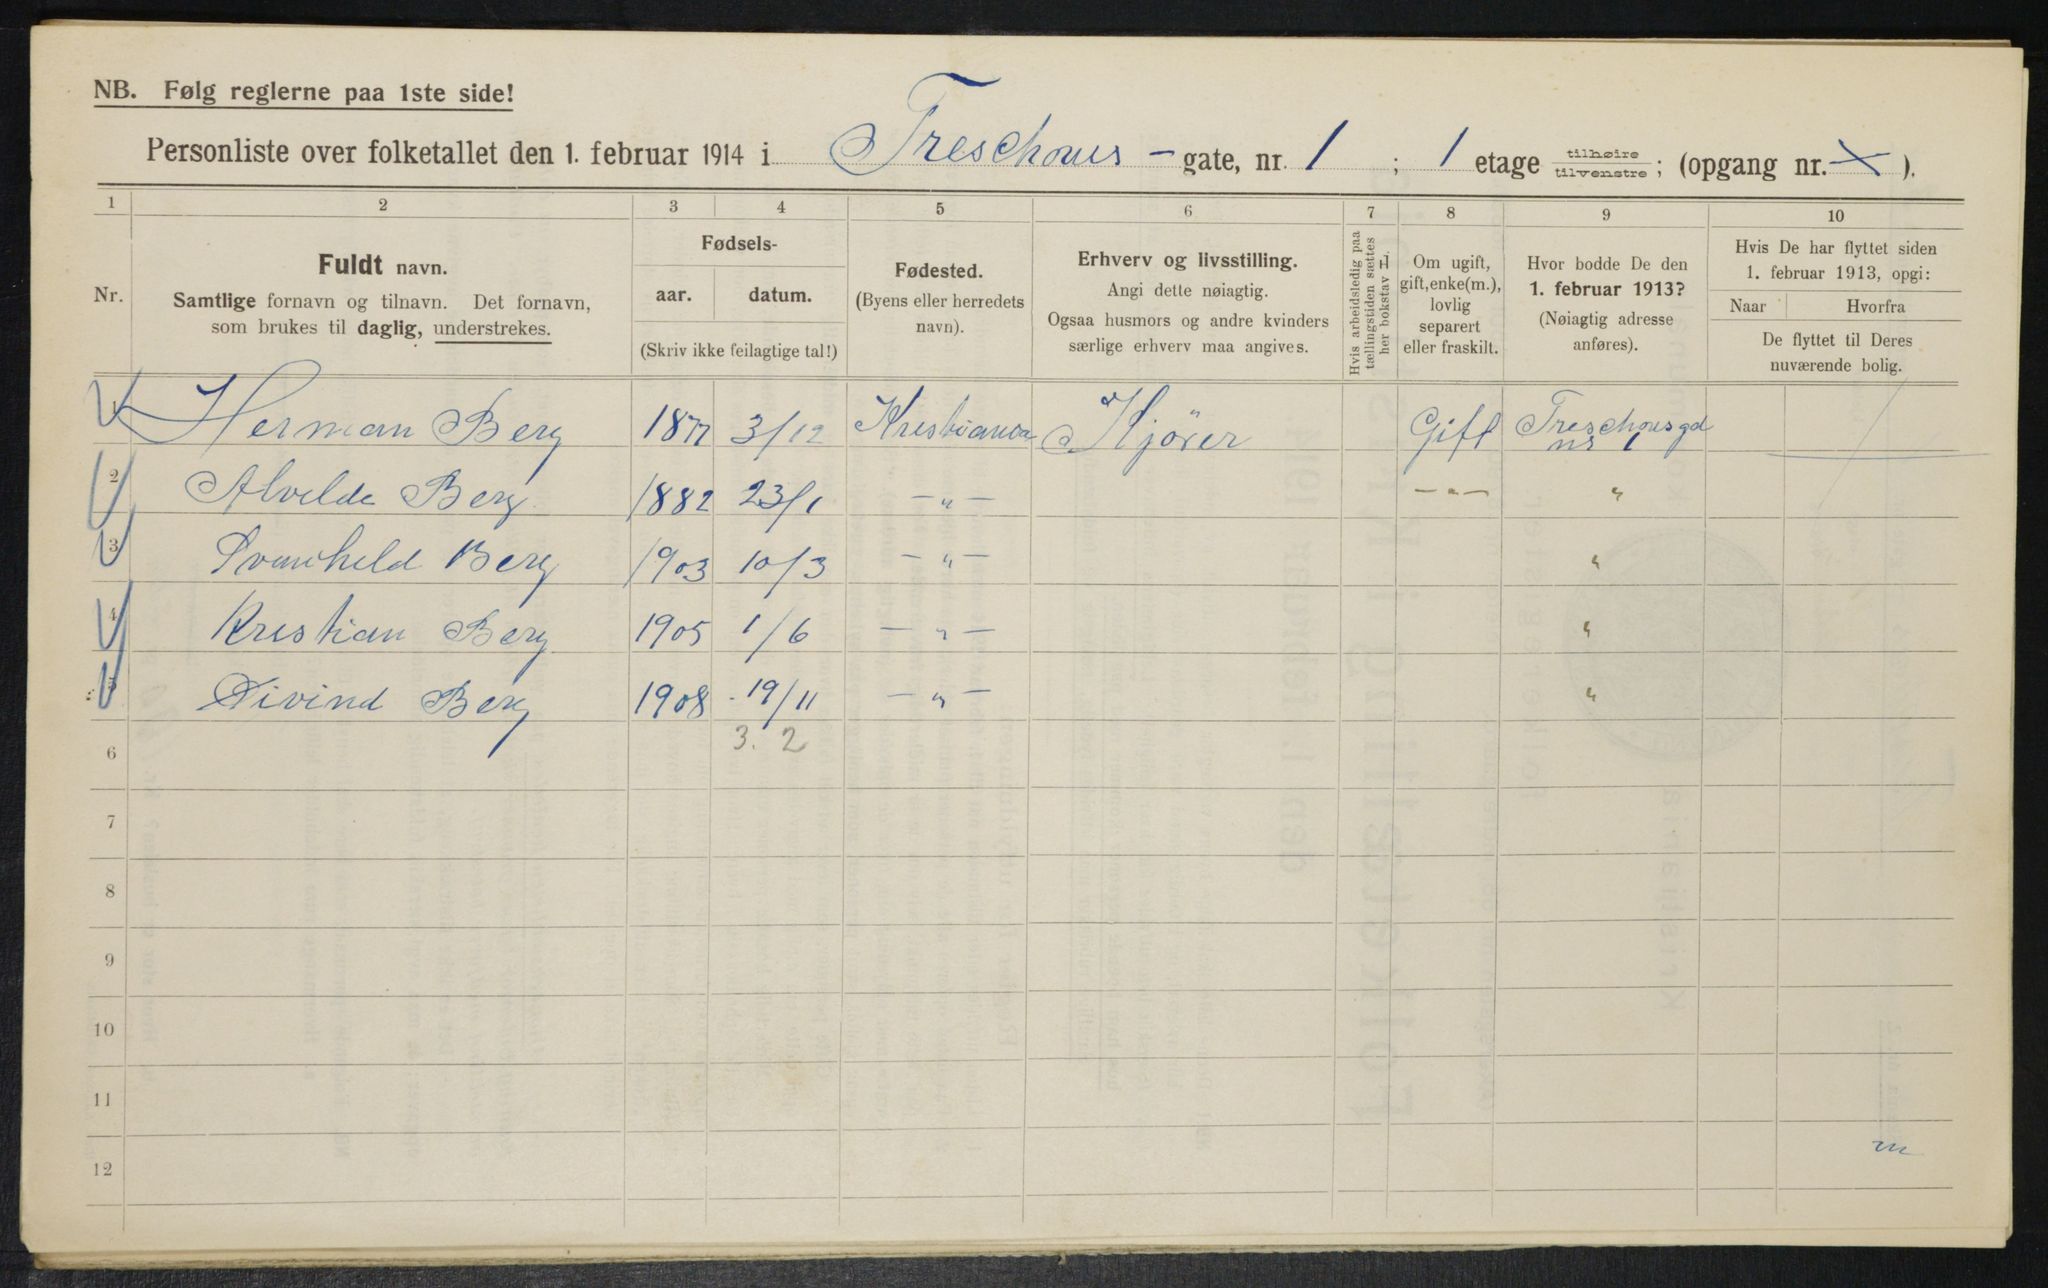 NB. Følg reglerne paa 1ste side!
Personliste over folketallet den 1. februar 1914 i Treschows - gate, nr. 1 ; 1 etage tilhøire tilvenstre ; (opgang nr. X ).
1 2 3 4 5 6 7 8 9 10
Nr.
Fuldt navn.
Samtlige fornavn og tilnavn. Det fornavn,
som brukes til daglig, understrekes.
Fødsels-
aar. datum.
(Skriv ikke feilagtige tal!)
Fødested.
(Byens eller herredets
navn).
Erhverv og livsstilling.
Angi dette nøiagtig.
Ogsaa husmors og andre kvinders
særlige erhverv maa angives.
Hvis arbeidsledig paa
tællingstiden sættes
her bokstav L.
Om ugift,
gift, enke(m.),
lovlig
separert
eller fraskilt.
Hvor bodde De den
1. februar 1913?
(Nøiagtig adresse
anføres).
Hvis De har flyttet siden
1. februar 1913, opgi:
Naar Hvorfra
De flyttet til Deres
nuværende bolig.
1 Herman Berg 1877 3/12 Kristiania Kjörer Gift Treschowsgd
nr 1
2 Alvilde Berg 1882 23/1 — „ — — „ — „
3 Svanhild Berg 1903 10/3 — „ — „
4 Kristian Berg 1905 1/6 — „ — „
5 Øivind Berg 1908 19/11 — „ — „
3. 2
6
7
8
9
10
11
12
m